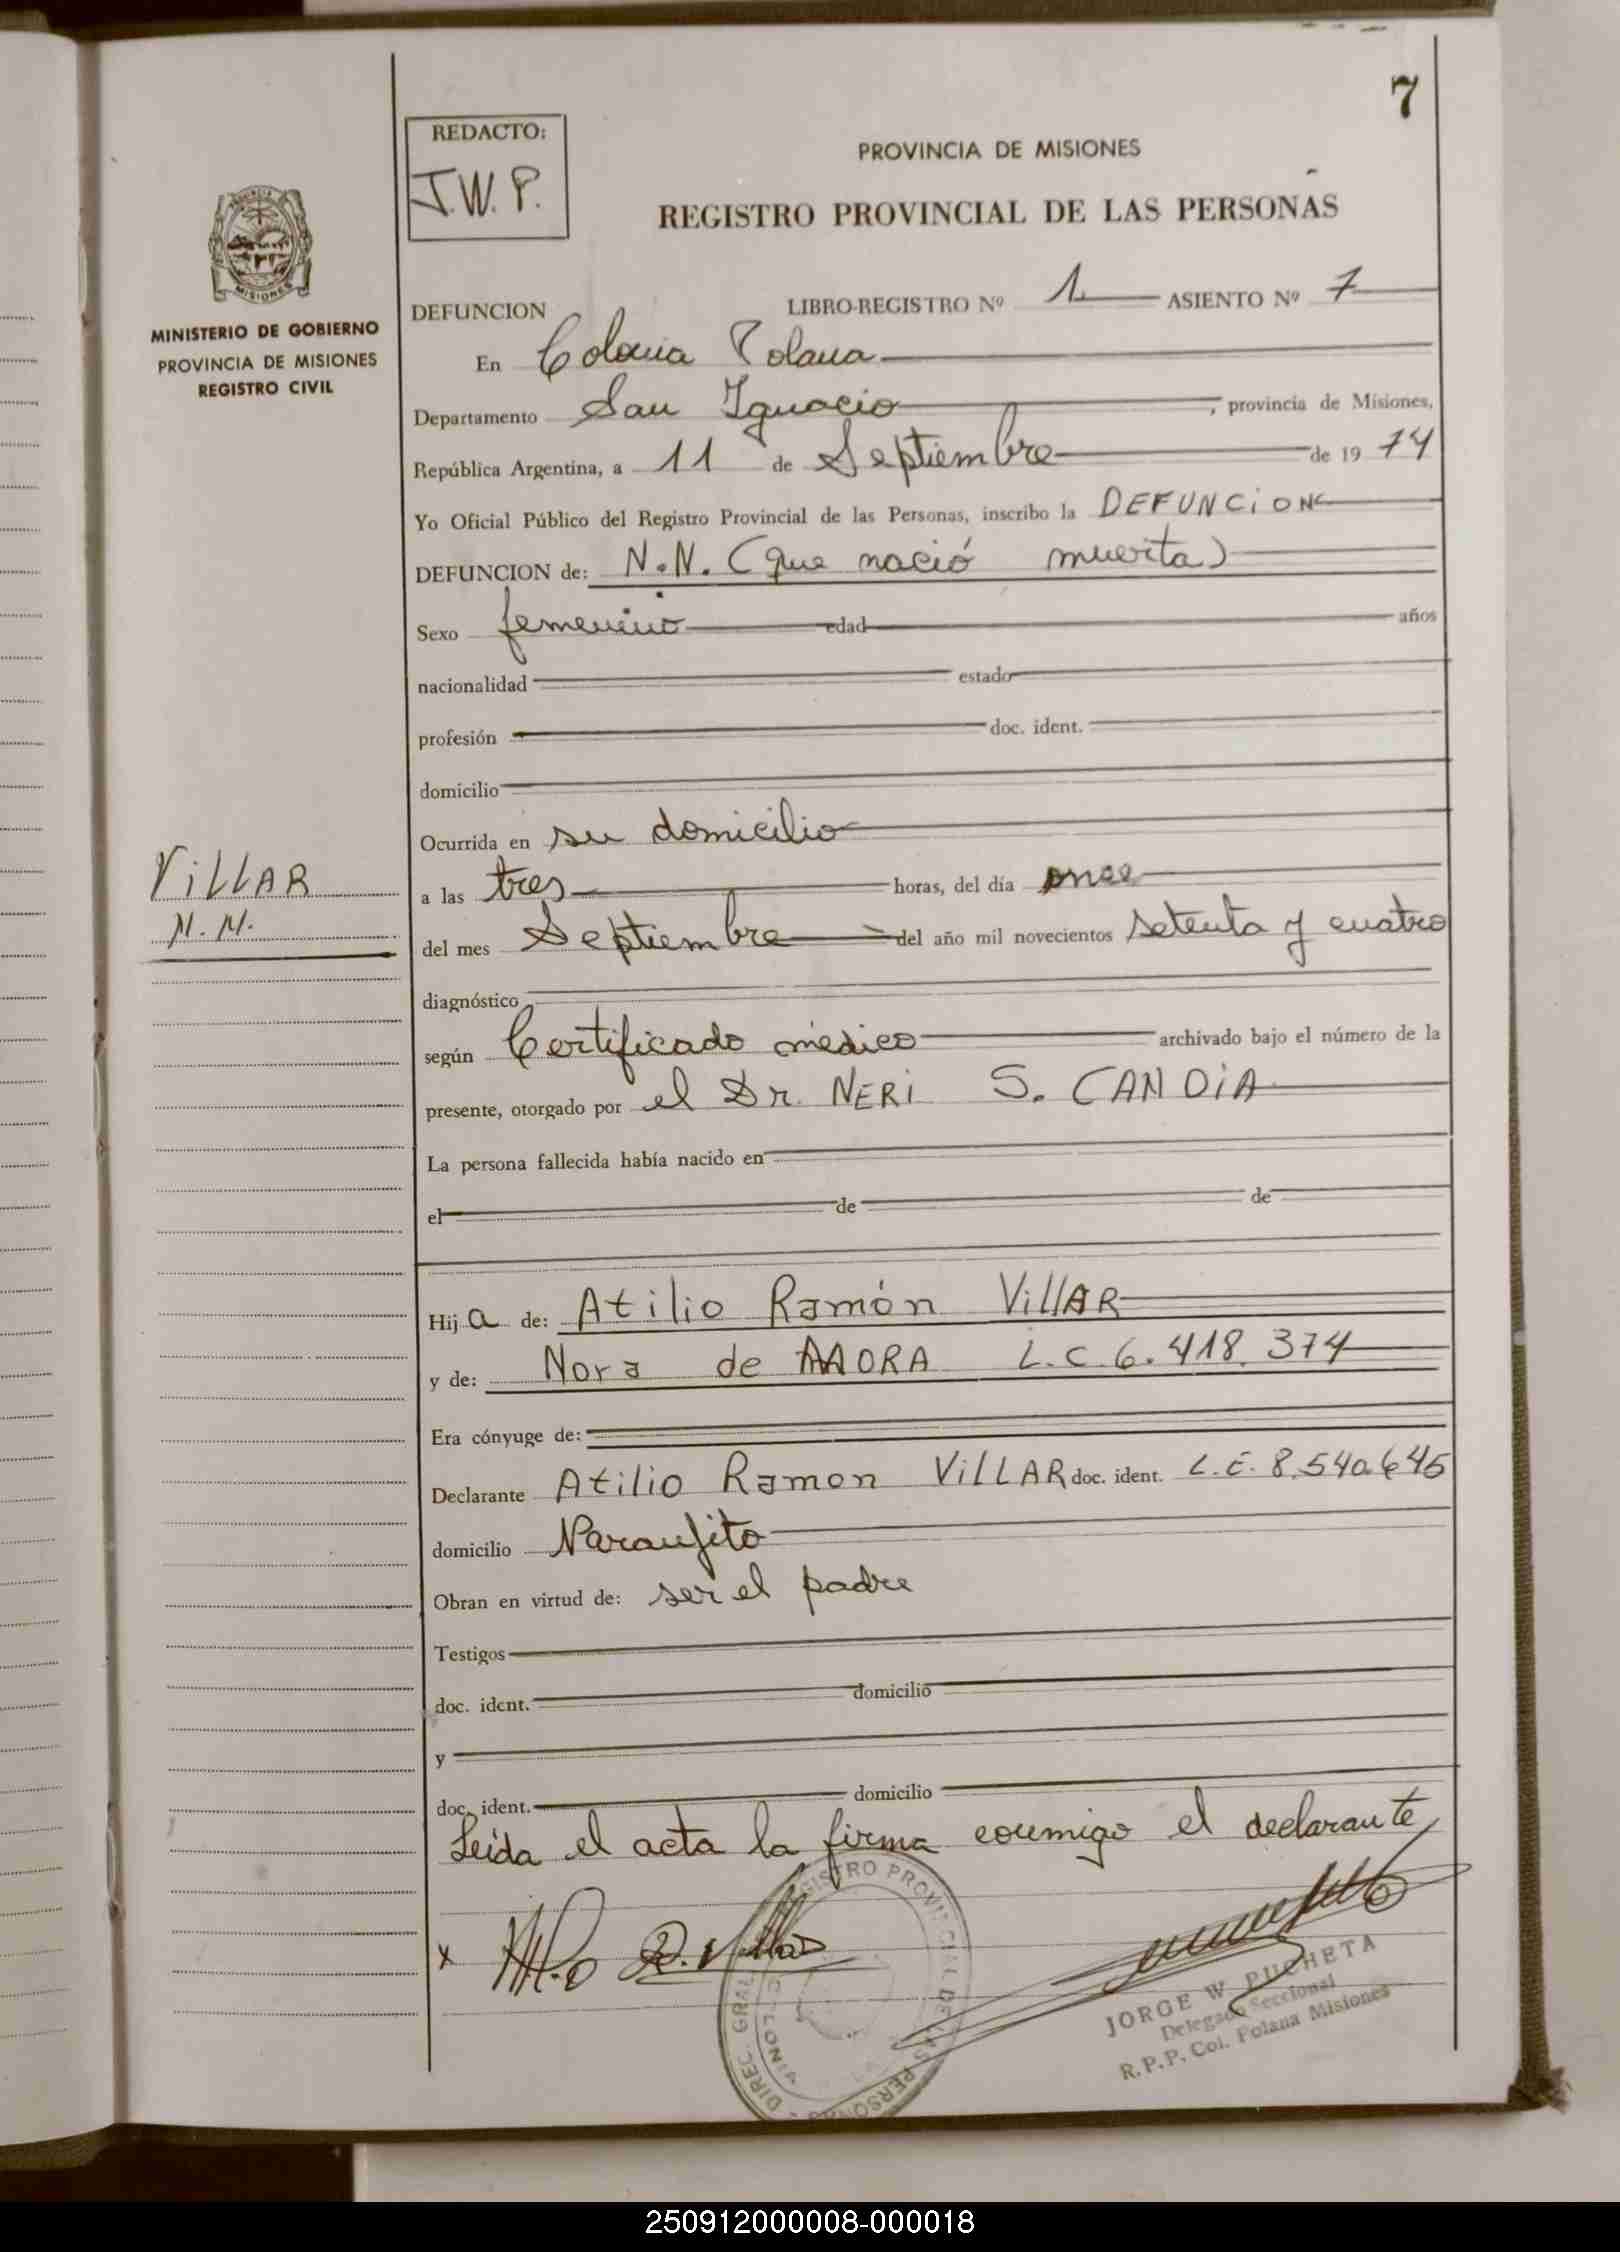 7
REDACTO:
J.W.P.
PROVINCIA DE MISIONES
REGISTRO PROVINCIAL DE LAS PERSONAS
MISIONES
MINISTERIO DE GOBIERNO
PROVINCIA DE MISIONES
REGISTRO CIVIL
DEFUNCION LIBRO-REGISTRO Nº 1 ASIENTO Nº 7
En Colonia Polana
Departamento San Ignacio, provincia de Misiones,
República Argentina, a 11 de Septiembre de 1974
Yo Oficial Público del Registro Provincial de las Personas, inscribo la DEFUNCION
DEFUNCION de: N.N. (que nació muerta)
Sexo femenino edad años
nacionalidad estado
profesión doc. ident.
domicilio
Ocurrida en su domicilio
VILLAR
N.N.
a las tres horas, del día once
del mes Septiembre del año mil novecientos setenta y cuatro
diagnóstico
según Certificado médico archivado bajo el número de la
presente, otorgado por el Dr. NERI S. CANDIA
La persona fallecida había nacido en
el de de
Hija de: Atilio Ramón VILLAR
y de: Nora de MORA L.C. 6.418.374
Era cónyuge de:
Declarante Atilio Ramon VILLAR doc. ident. L.E. 8.540.645
domicilio Naranjito
Obran en virtud de: ser el padre
Testigos
doc. ident. domicilio
y
doc. ident. domicilio
Leída el acta la firma conmigo el declarante
x
DIREC. GRAL. REGISTRO PROVINCIAL DE LAS PERSONAS
COLONIA
JORGE W. PUCHETA
Delegado Seccional
R.P.P. Col. Polana Misiones
250912000008-000018